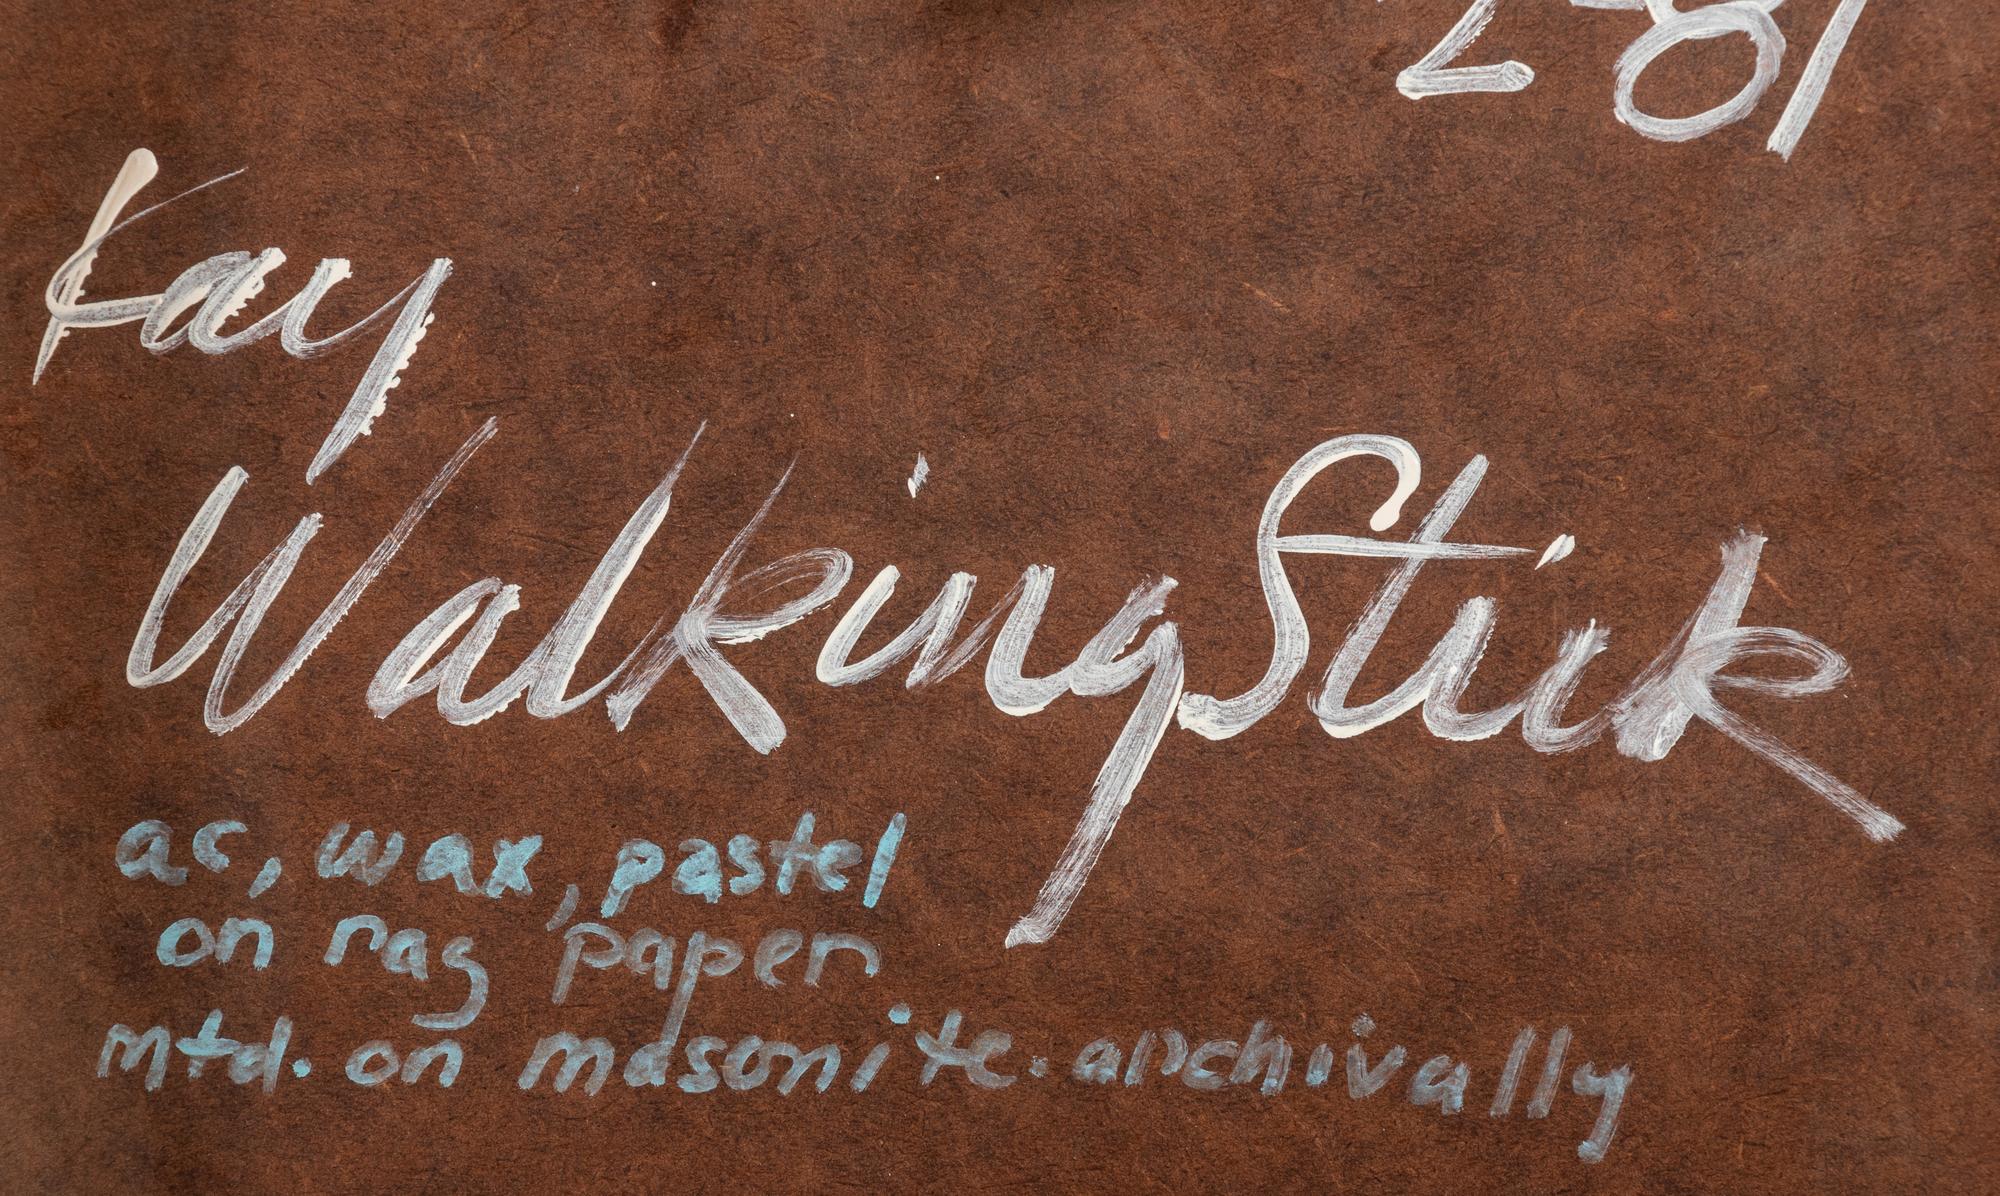 2-81
Kay
WalkingStick
ac, wax, pastel
on rag paper
mtd. on masonite. archivally